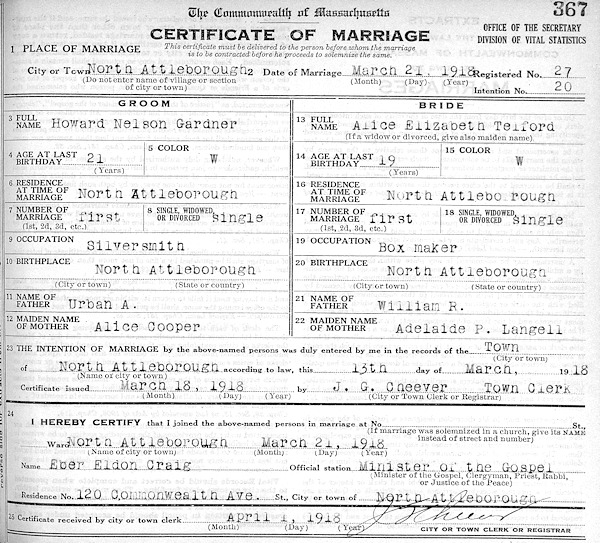 The Commonwealth of Massachusetts 367
CERTIFICATE OF MARRIAGE
OFFICE OF THE SECRETARY
DIVISION OF VITAL STATISTICS
1 PLACE OF MARRIAGE
This certificate must be delivered to the person before whom the marriage
is to be contracted before he proceeds to solemnize the same.
City or Town North Attleborough 2 Date of Marriage March 21, 1918 Registered No. 27
(Do not enter name of village or section
of city or town) (Month) (Day) (Year)
Intention No. 20
GROOM
3 FULL NAME Howard Nelson Gardner
4 AGE AT LAST BIRTHDAY 21 (Years) 5 COLOR W
6 RESIDENCE AT TIME OF MARRIAGE North Attleborough
7 NUMBER OF MARRIAGE first (1st, 2d, 3d, etc.) 8 SINGLE, WIDOWED OR DIVORCED single
9 OCCUPATION Silversmith
10 BIRTHPLACE North Attleborough
(City or town) (State or country)
11 NAME OF FATHER Urban A.
12 MAIDEN NAME OF MOTHER Alice Cooper
BRIDE
13 FULL NAME Alice Elizabeth Telford
(If a widow or divorced, give also maiden name)
14 AGE AT LAST BIRTHDAY 19 (Years) 15 COLOR W
16 RESIDENCE AT TIME OF MARRIAGE North Attleborough
17 NUMBER OF MARRIAGE first (1st, 2d, 3d, etc.) 18 SINGLE, WIDOWED OR DIVORCED single
19 OCCUPATION Box maker
20 BIRTHPLACE North Attleborough
(City or town) (State or country)
21 NAME OF FATHER William R.
22 MAIDEN NAME OF MOTHER Adelaide P. Langell
23 THE INTENTION OF MARRIAGE by the above-named persons was duly entered by me in the records of the Town
(City or town)
of North Attleborough according to law, this 13th day of March, 1918
(Name of city or town)
Certificate issued March 18, 1918 by J. G. Cheever Town Clerk
(Month) (Day) (Year) (City or Town Clerk or Registrar)
24
I HEREBY CERTIFY that I joined the above-named persons in marriage at No. St.,
(If marriage was solemnized in a church, give its NAME
instead of street and number)
Ward North Attleborough March 21, 1918
(Name of city or town) (Month) (Day) (Year)
Name Eber Eldon Craig Official station Minister of the Gospel
(Minister of the Gospel, Clergyman, Priest, Rabbi,
or Justice of the Peace)
Residence No. 120 Commonwealth Ave. St., City or town of North Attleborough
25 Certificate received by city or town clerk April 1, 1918
(Month) (Day) (Year)
CITY OR TOWN CLERK OR REGISTRAR